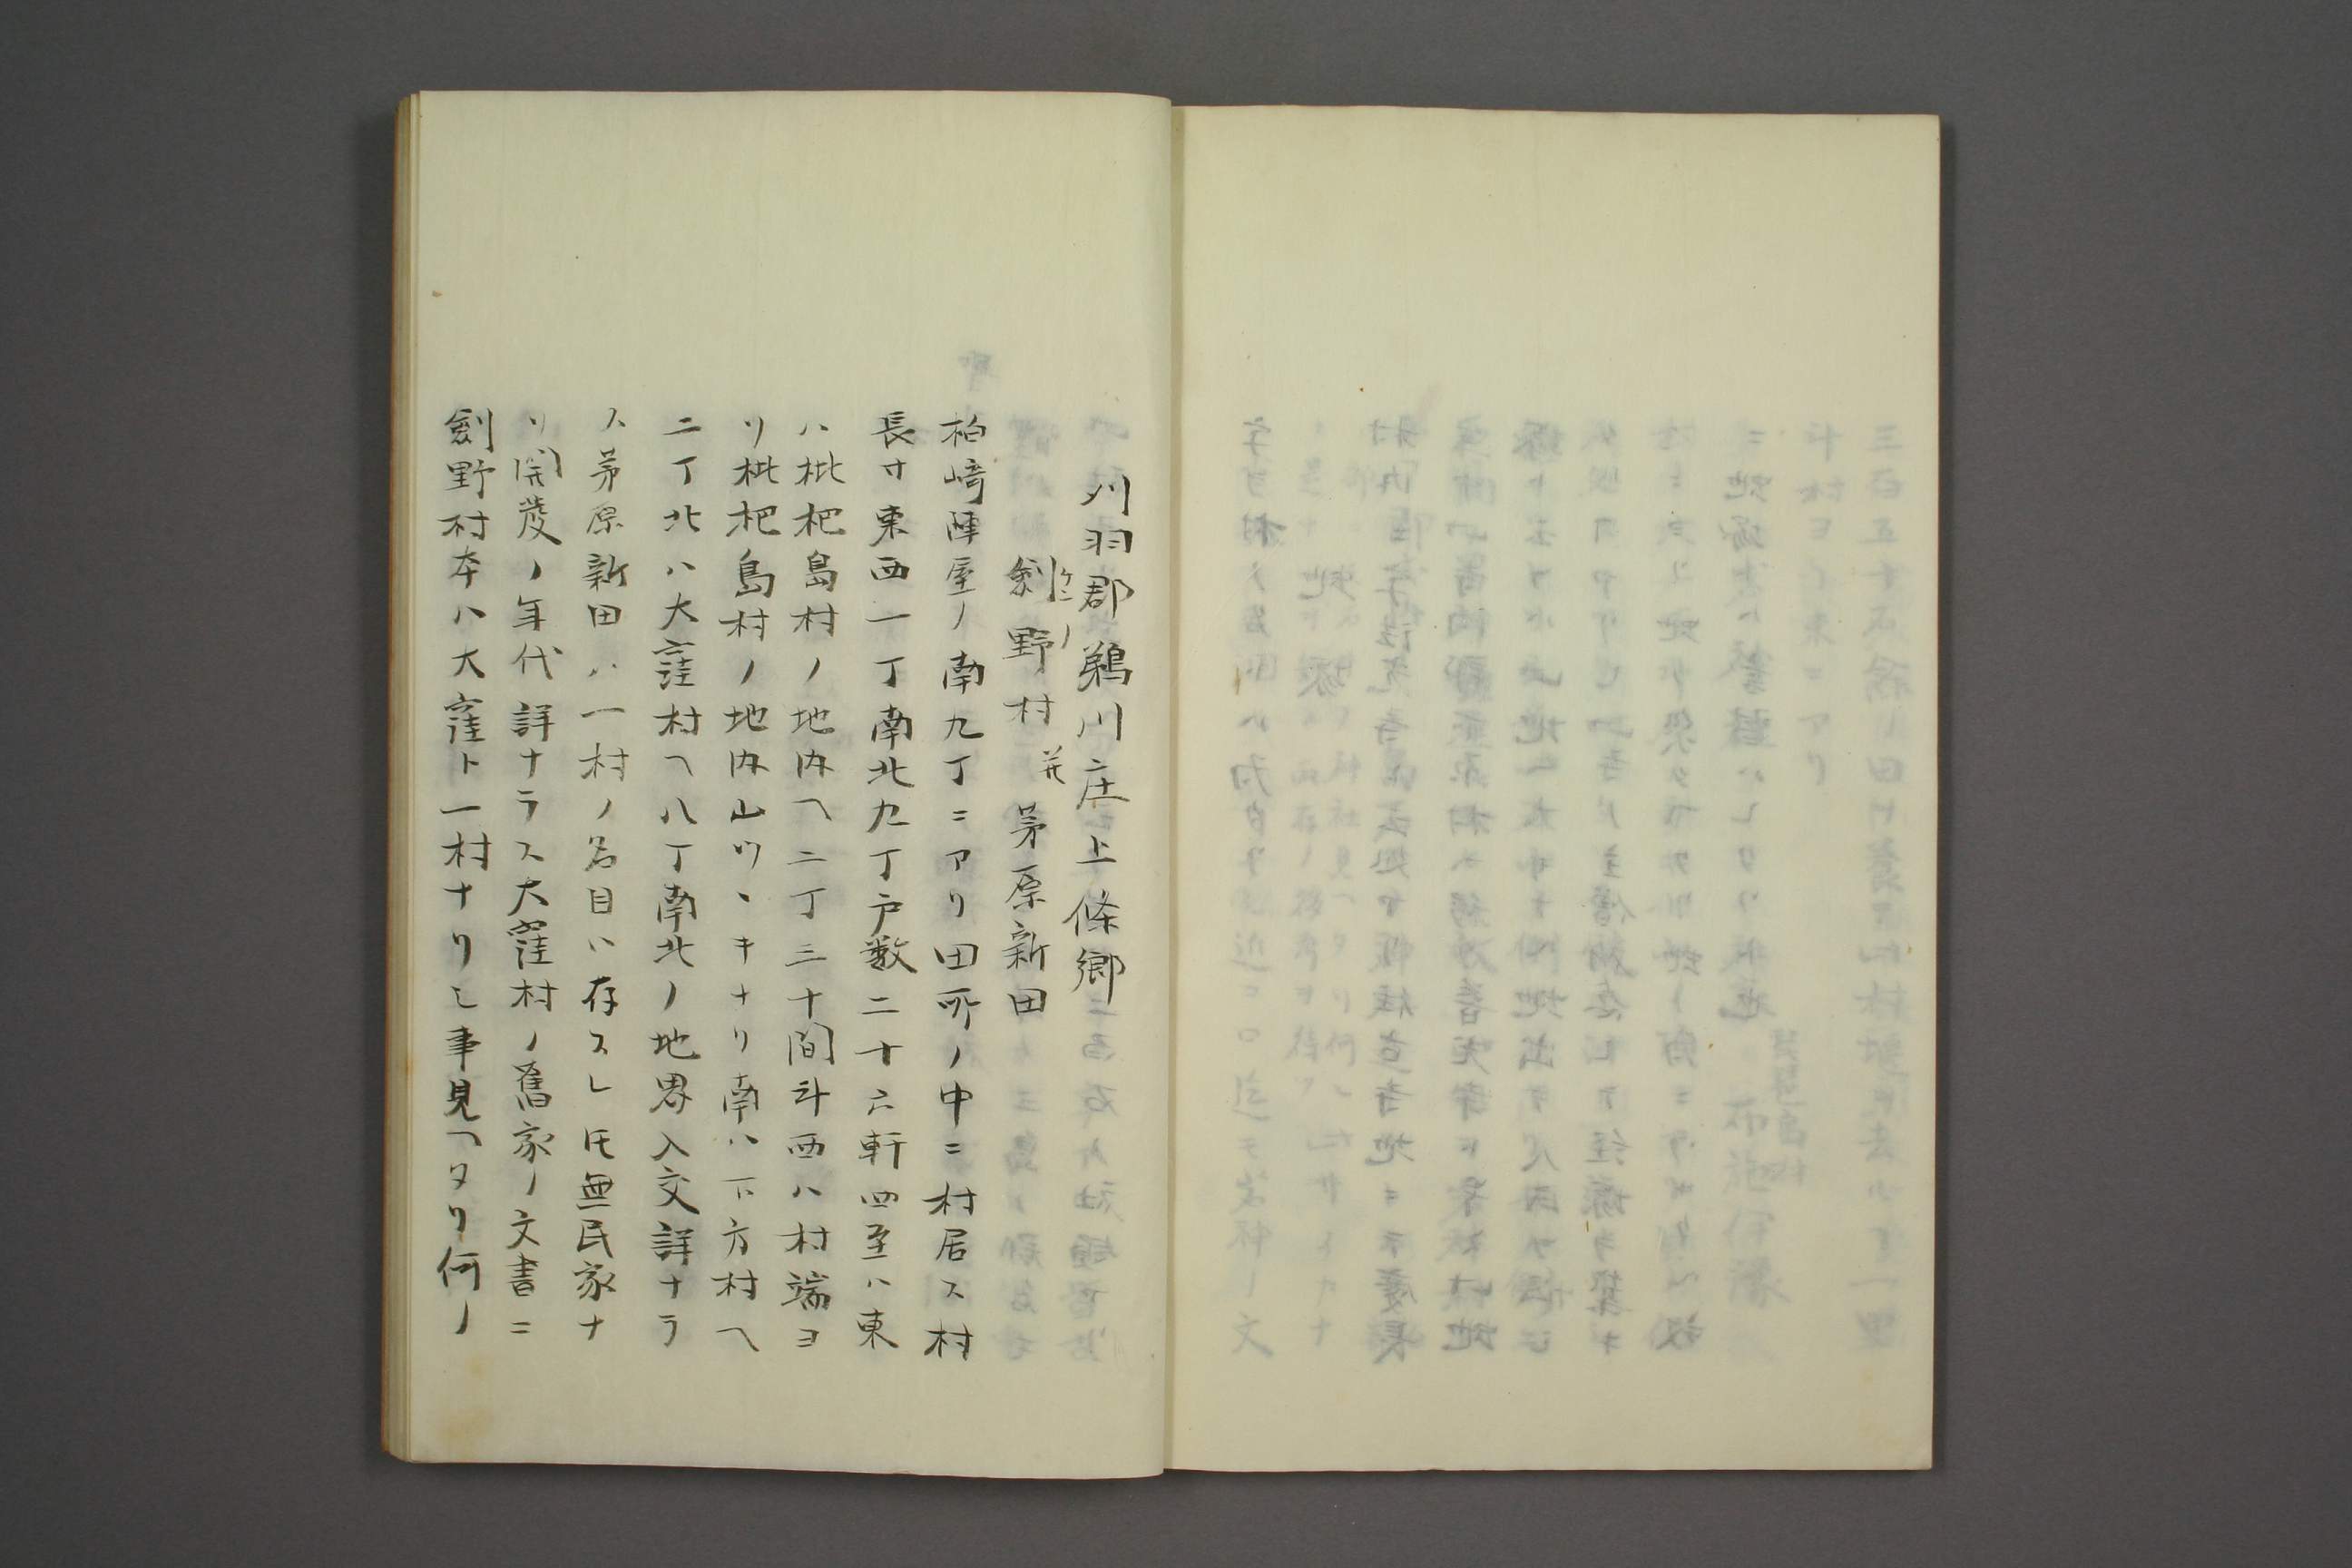 刈羽郡鵜川庄上條郷
剣野村 并 茅原新田
ケンノ
柏崎陣屋ノ南九丁ニアリ田所ノ中ニ村居ス村
長サ東西一丁南北九丁戸数二十六軒四至ハ東
ハ枇杷島村ノ地内ヘ二丁三十間斗西ハ村端ヨ
リ枇杷島村ノ地内山ツヽキナリ南ハ下方村ヘ
二丁北ハ大窪村ヘ八丁南北ノ地界入交詳ナラ
ス茅原新田ハ一村ノ名目ハ存スレ𪜈無民家ナ
リ開発ノ年代詳ナラス大窪村ノ舊家ノ文書ニ
剣野村本ハ大窪ト一村ナリシ事見ヘタリ何ノ